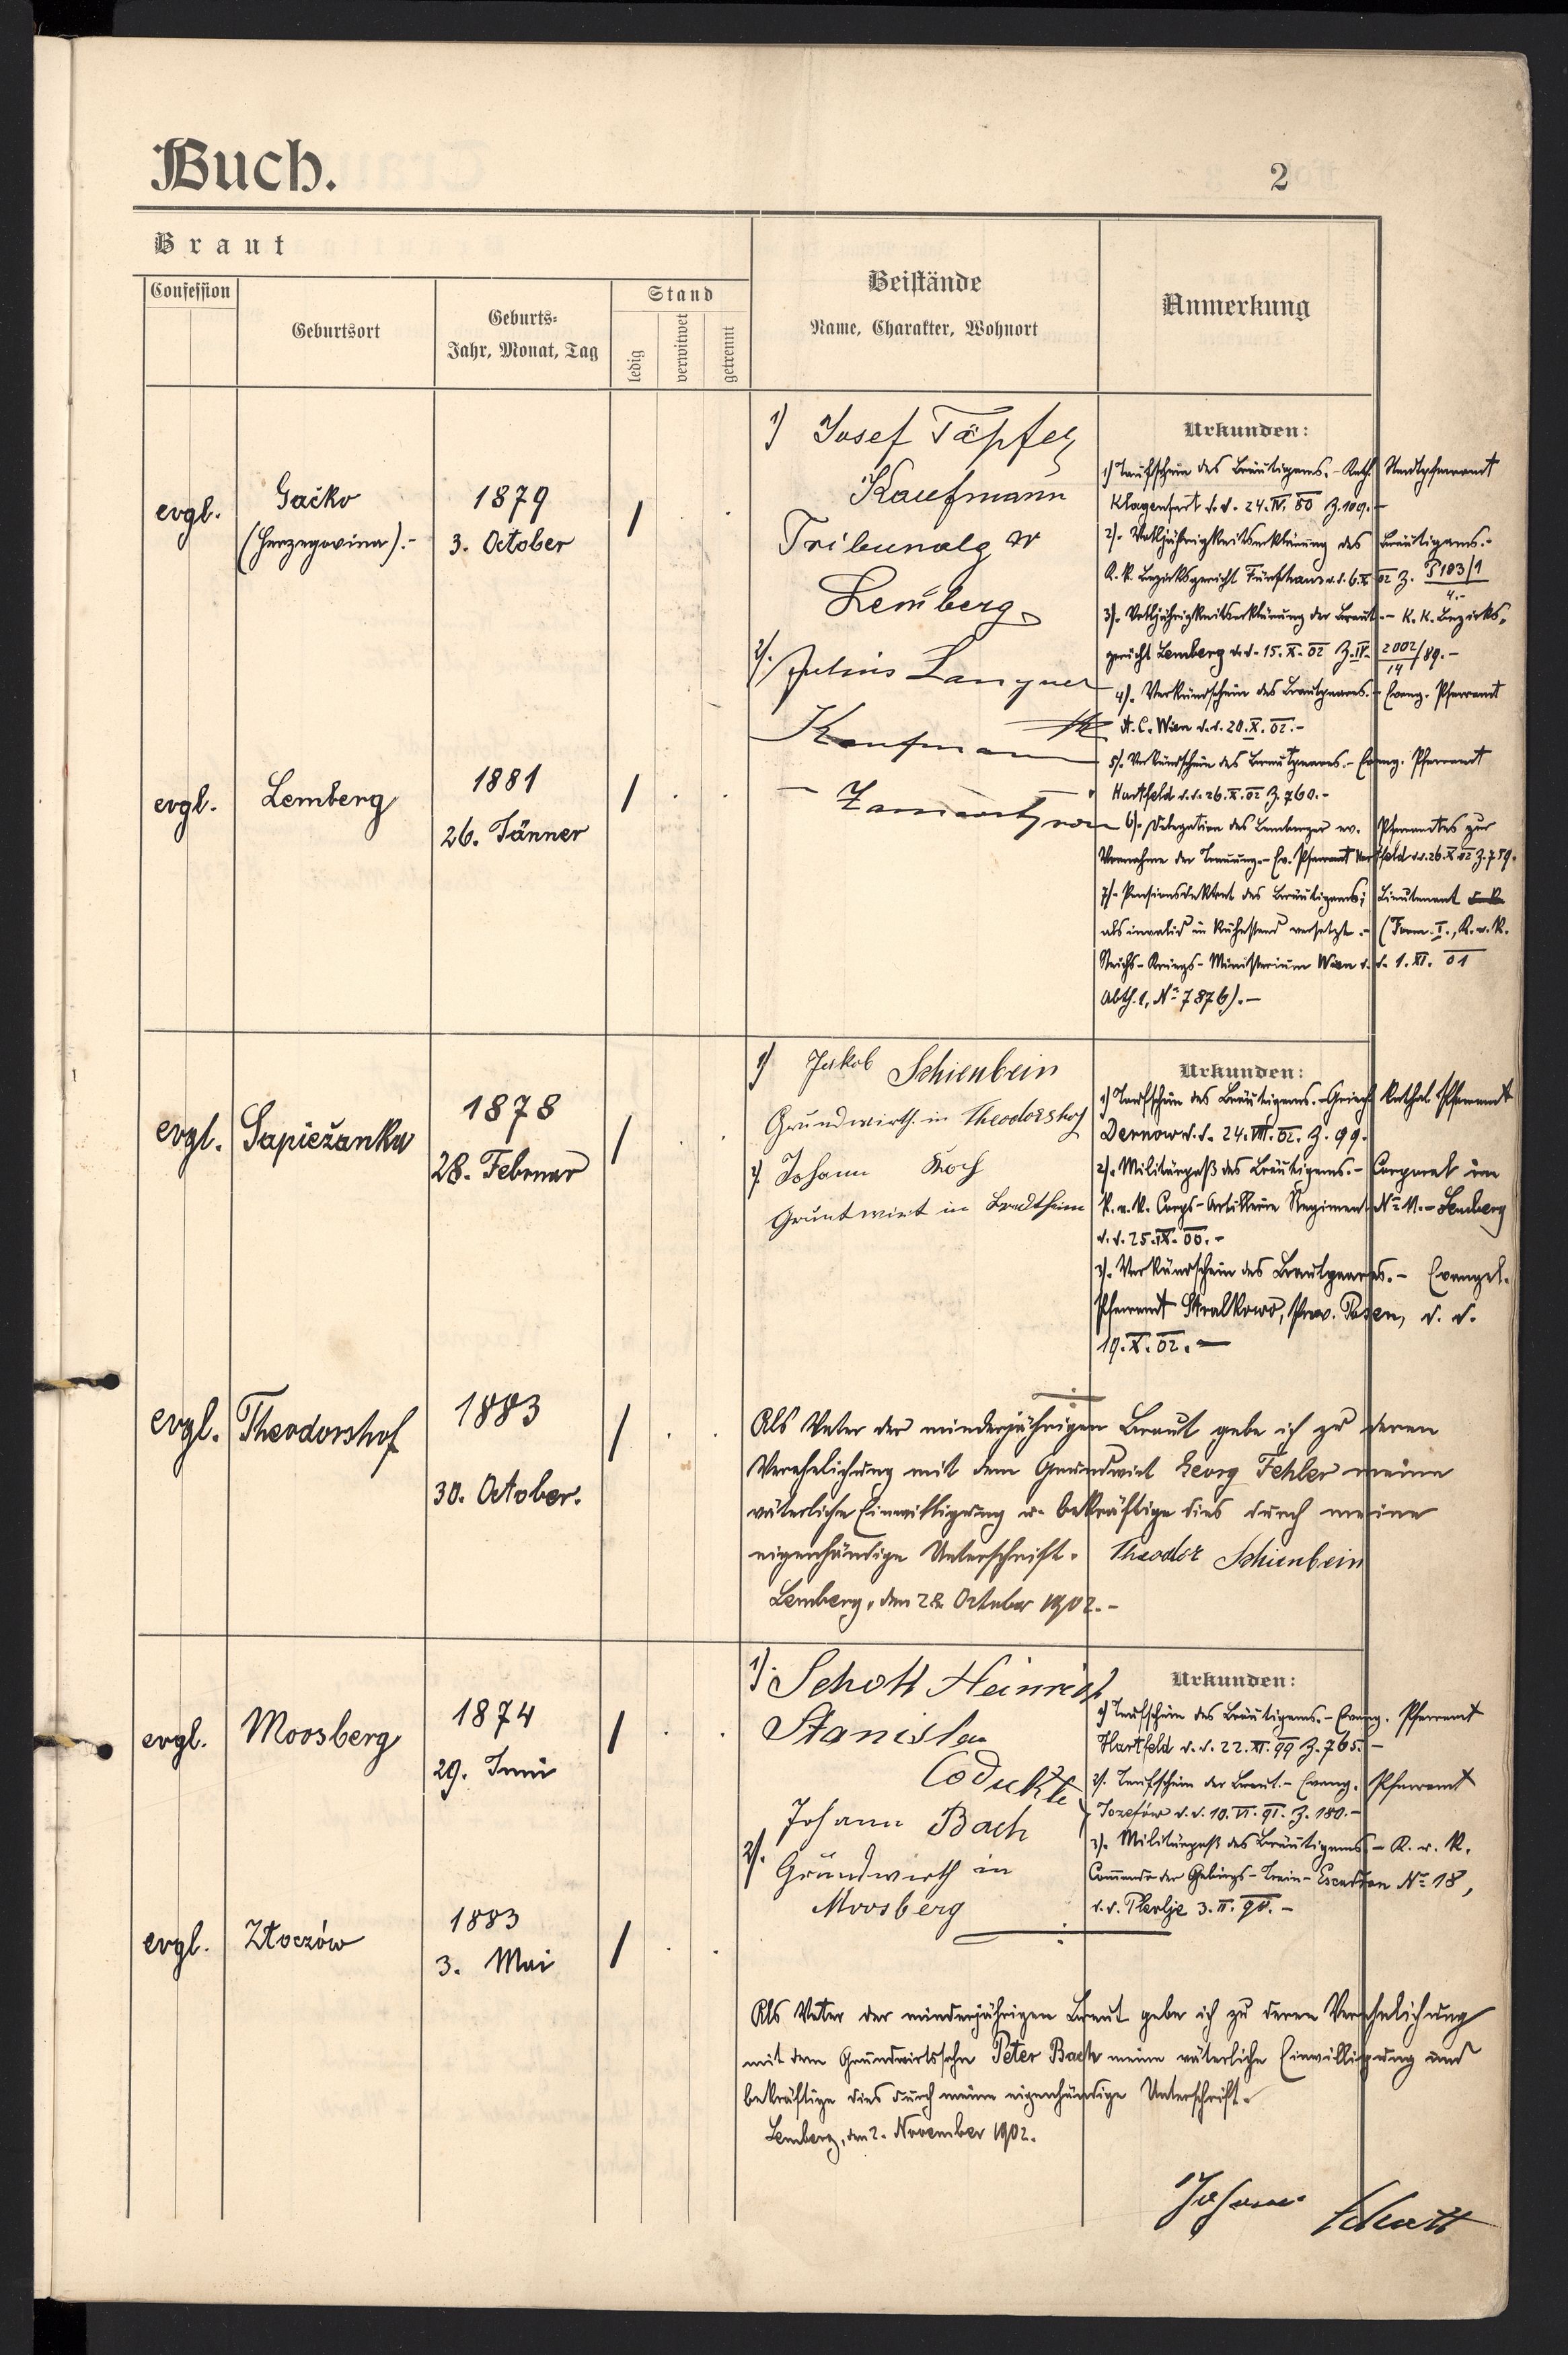 Buch.
2
Braut
Confession
Geburtsort
Geburts-
Jahr, Monat, Tag
Stand
ledig
verwitwet
getrennt
Beistände
Name, Charakter, Wohnort
Anmerkung
evgl.
Gačko
(Herzegovina).-
1879
3. October
1) Josef Täpfer
Kaufmann
Tribunalg
Lemberg
2). Julius Langner
Kaufmann
evgl.
Lemberg
1881
26. Jänner
Urkunden:
1) Taufschein des Bräutigams.- Kath. Stadtpfarramt
Klagenfurt d.d. 24. IV. 80 Z. 109.-
2). Volljährigkeitserklärung des Bräutigams.-
K. k. Bezirksgericht Fünfhaus d.d. 6. X. 02 Z. P 103/1
4.-
3). Volljährigkeitserklärung der Braut.- K. k. Bezirks-
gericht Lemberg d.d. 15. X. 02 Z. IV. 2002/89.-
14
4). Verkündschein des Brautpaares.- Evang. Pfarramt
A. C. Wien d.d. 20. X. 02.-
5). Verkündschein des Brautpaares.- Evang. Pfarramt
Hartfeld d.d. 26. X. 02 Z. 760.-
6). Delegation des Lemberger ev. Pfarramtes zur
Vornahme der Trauung.- Ev. Pfarramt Hartfeld d.d. 26. X. 02 Z. 759.
7). Pensionsdekret des Bräutigams; Lieutenant
als invalid in Ruhestand versetzt.- (Form. I., K. u. K.
Reichs-Kriegs-Ministerium Wien d.d. 1. XI. 01
Abth. 1, Nº 7876).-
evgl.
Sapieżanka
1878
28. Februar
1) Jakob Schienbein
Grundwirth in Theodorshof
2). Johann Koch
Gruntwirt in Brodtheim
Urkunden:
1) Taufschein des Bräutigams.- Griech. Kathol. Pfarramt
Dernow d.d. 24. VIII. 02. Z. 99.
2). Militärpaß des Bräutigams.- Corporal im
k. u. k. Corps-Artillerie Regiment Nº 11.- Lemberg
d.d. 25. IX. 00.-
3). Verkündschein des Brautpaares.- Evangel.
Pfarramt Stralkowo, Prov. Posen, d. d.
19. X. 02.-
evgl.
Theodorshof
1883
30. October.
Als Vater der minderjährigen Braut gebe ich zu deren
Verehelichung mit dem Grundwirt Georg Fehler meine
väterliche Einwilligung u. bekräftige dies durch meine
eigenhändige Unterschrift. Theodor Schienbein
Lemberg, den 28. October 1902.-
evgl.
Moosberg
1874
29. Juni
1). Schott Heinrich
Stanisla
2). Johann Bach
Grundwirth in
Moosberg
Urkunden:
1) Taufschein des Bräutigams.- Evang. Pfarramt
Hartfeld d.d. 22. XI. 99 Z. 765.-
2). Taufschein der Braut.- Evang. Pfarramt
Josefów d.d. 10. VI. 91. Z. 180.-
3). Militärpaß des Bräutigams.- K. u. K.
Commando der Gebirgs-Train-Escadron Nº 18,
d.d. Plevlje 3. II. 98.-
evgl.
Złoczów
1883
3. Mai
Als Vater der minderjährigen Braut gebe ich zu deren Verehelichung
mit dem Grundwirtssohn Peter Bach meine väterliche Einwilligung und
bekräftige dies durch meine eigenhändige Unterschrift.
Lemberg, den 2. November 1902.
Johann Schott